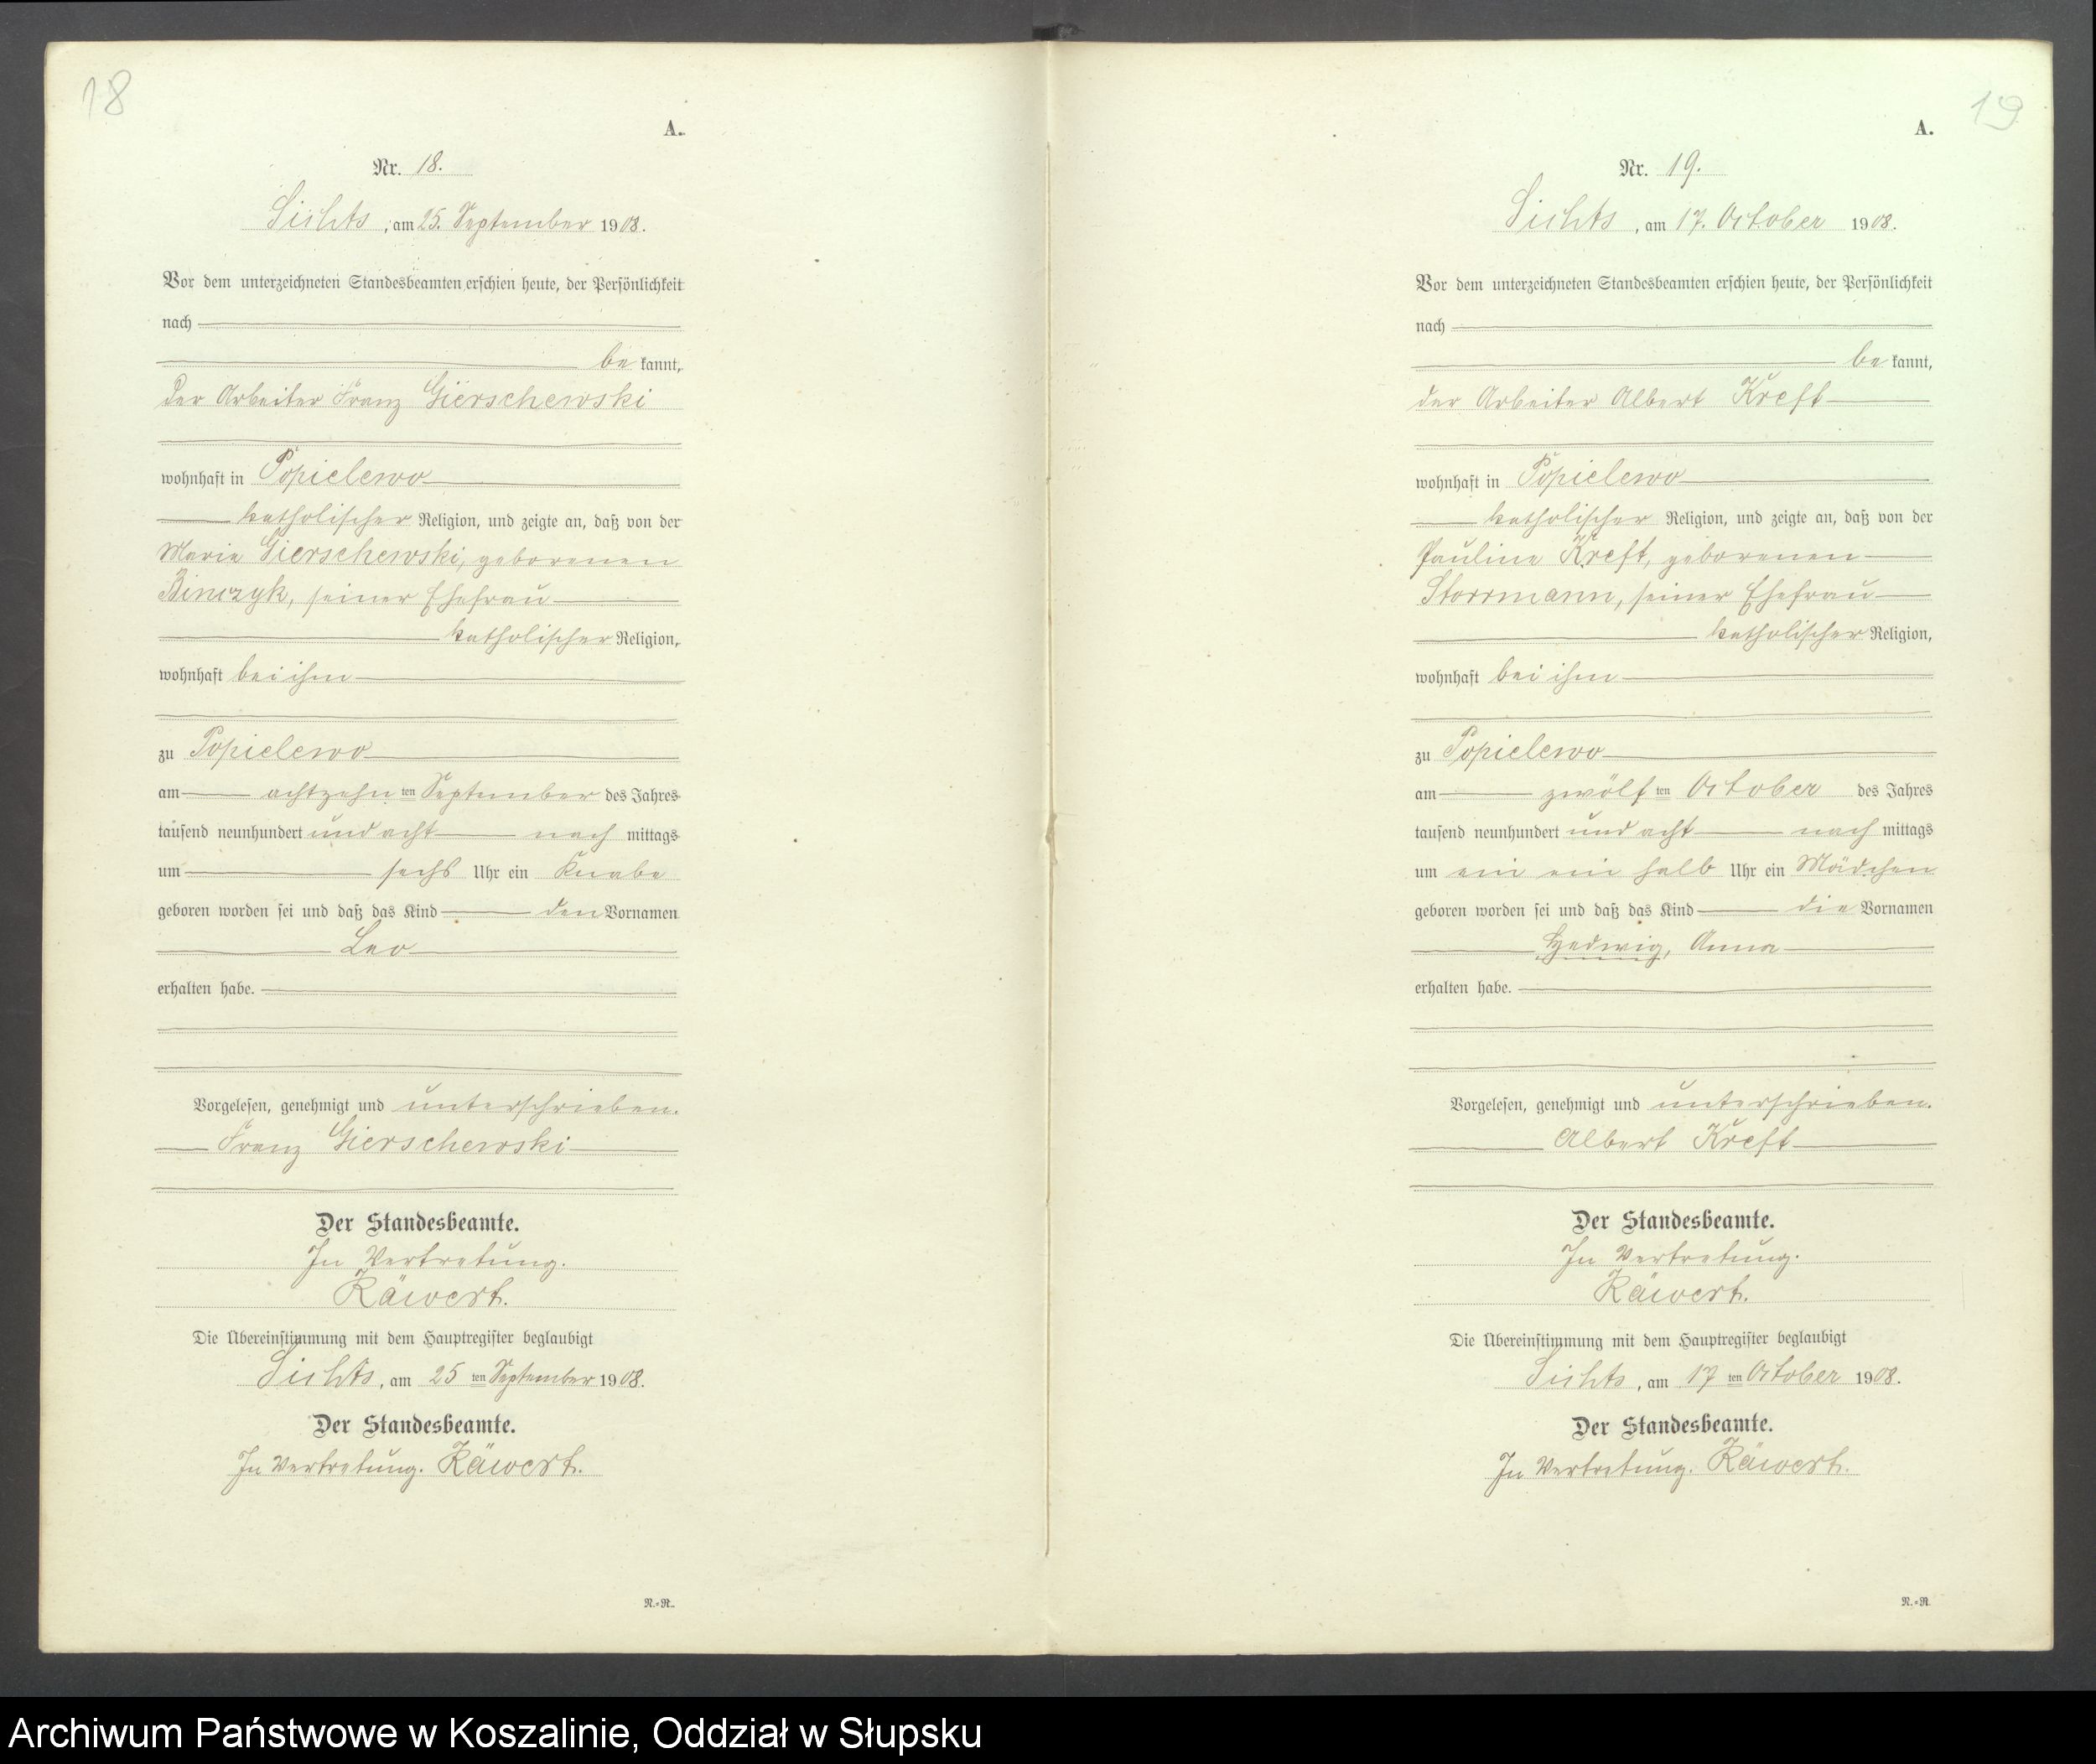 18
A.
Nr. 18.
Lichts, am 25. September 1908.
Vor dem unterzeichneten Standesbeamten erschien heute, der Persönlichkeit
nach
be kannt,
der Arbeiter Franz Gierschewski
wohnhaft in Popielewo
katholischer Religion, und zeigte an, daß von der
Maria Gierschewski, geborenen
Binczyk, seiner Ehefrau
katholischer Religion,
wohnhaft bei ihm
zu Popielewo
am achtzehn ten September des Jahres
tausend neunhundert und acht nach mittags
um sechs Uhr ein Knabe
geboren worden sei und daß das Kind den Vornamen
Leo
erhalten habe.
Vorgelesen, genehmigt und unterschrieben.
Franz Gierschewski
Der Standesbeamte.
In Vertretung.
Räwert.
Die Übereinstimmung mit dem Hauptregister beglaubigt
Lichts, am 25 ten September 1908.
Der Standesbeamte.
In Vertretung. Räwert.
N.=R.
19
A.
Nr. 19.
Lichts, am 17. October 1908.
Vor dem unterzeichneten Standesbeamten erschien heute, der Persönlichkeit
nach
be kannt,
der Arbeiter Albert Kreft
wohnhaft in Popielewo
katholischer Religion, und zeigte an, daß von der
Pauline Kreft, geborenen
Storrmann, seiner Ehefrau
katholischer Religion,
wohnhaft bei ihm
zu Popielewo
am zwölf ten October des Jahres
tausend neunhundert und acht nach mittags
um ein ein halb Uhr ein Mädchen
geboren worden sei und daß das Kind die Vornamen
Hedwig, Anna
erhalten habe.
Vorgelesen, genehmigt und unterschrieben.
Albert Kreft
Der Standesbeamte.
In Vertretung.
Räwert.
Die Übereinstimmung mit dem Hauptregister beglaubigt
Lichts, am 17 ten October 1908.
Der Standesbeamte.
In Vertretung. Räwert.
N.=R.
Archiwum Państwowe w Koszalinie, Oddział w Słupsku